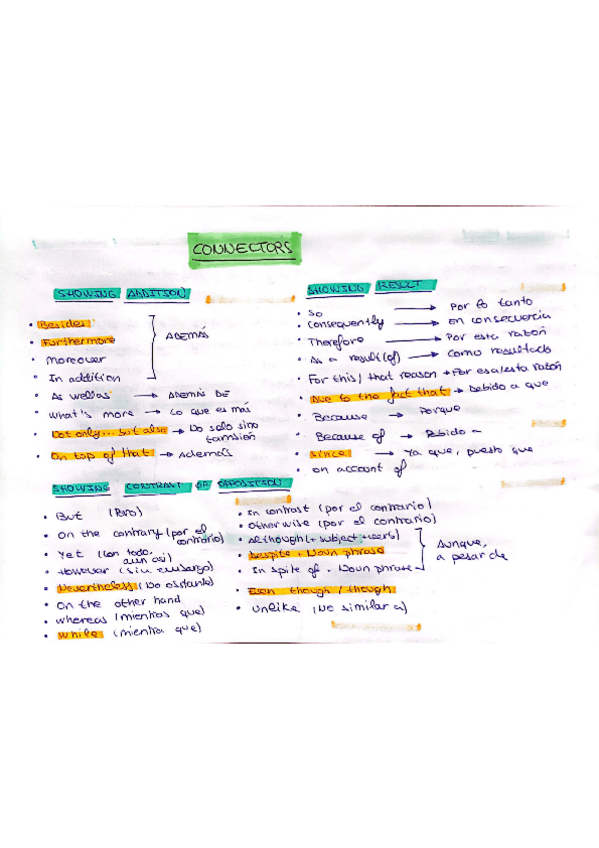 CONNECTORS
SHOWING ADDITION
• Besides
• Furthermore
• Moreover
• In addition
ADEMÁS
• As well as → ADEMÁS DE
• What's more → Lo que es más
• Not only... but also → No solo sino
también
• On top of that → Además
SHOWING RESULT
• So → Por lo tanto
• Consequently → En consecuencia
• Therefore → Por esta razón
• As a result (of) → Como resultado
• For this / that reason → Por esa/esta razón
• Due to the fact that → Debido a que
• Because → Porque
• Because of → Debido a
• Since → Ya que, puesto que
• on account of
SHOWING CONTRAST OR OPPOSITION
• But (Pero)
• On the contrary (por el
contrario)
• Yet (Con todo,
aun así)
• However (sin embargo)
• Nevertheless (No obstante)
• On the other hand
• whereas (mientras que)
• While (mientra que)
• In contrast (por el contrario)
• Otherwise (por el contrario)
• Although (+ subject + verb)
• Despite + Noun phrase
• In spite of + Noun phrase
Aunque,
a pesar de
• Even though / though
• Unlike (No similar a)